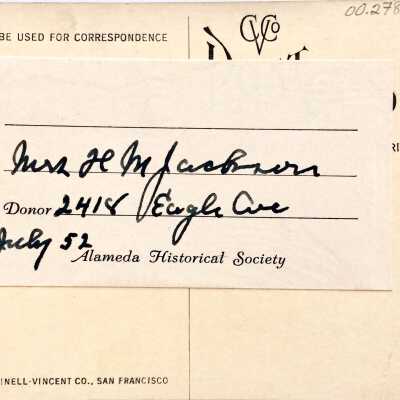 00.278
BE USED FOR CORRESPONDENCE
CVCo
Mrs H M Jackson
Donor 2418 Eagle Ave
July 52
Alameda Historical Society
NELL-VINCENT CO., SAN FRANCISCO